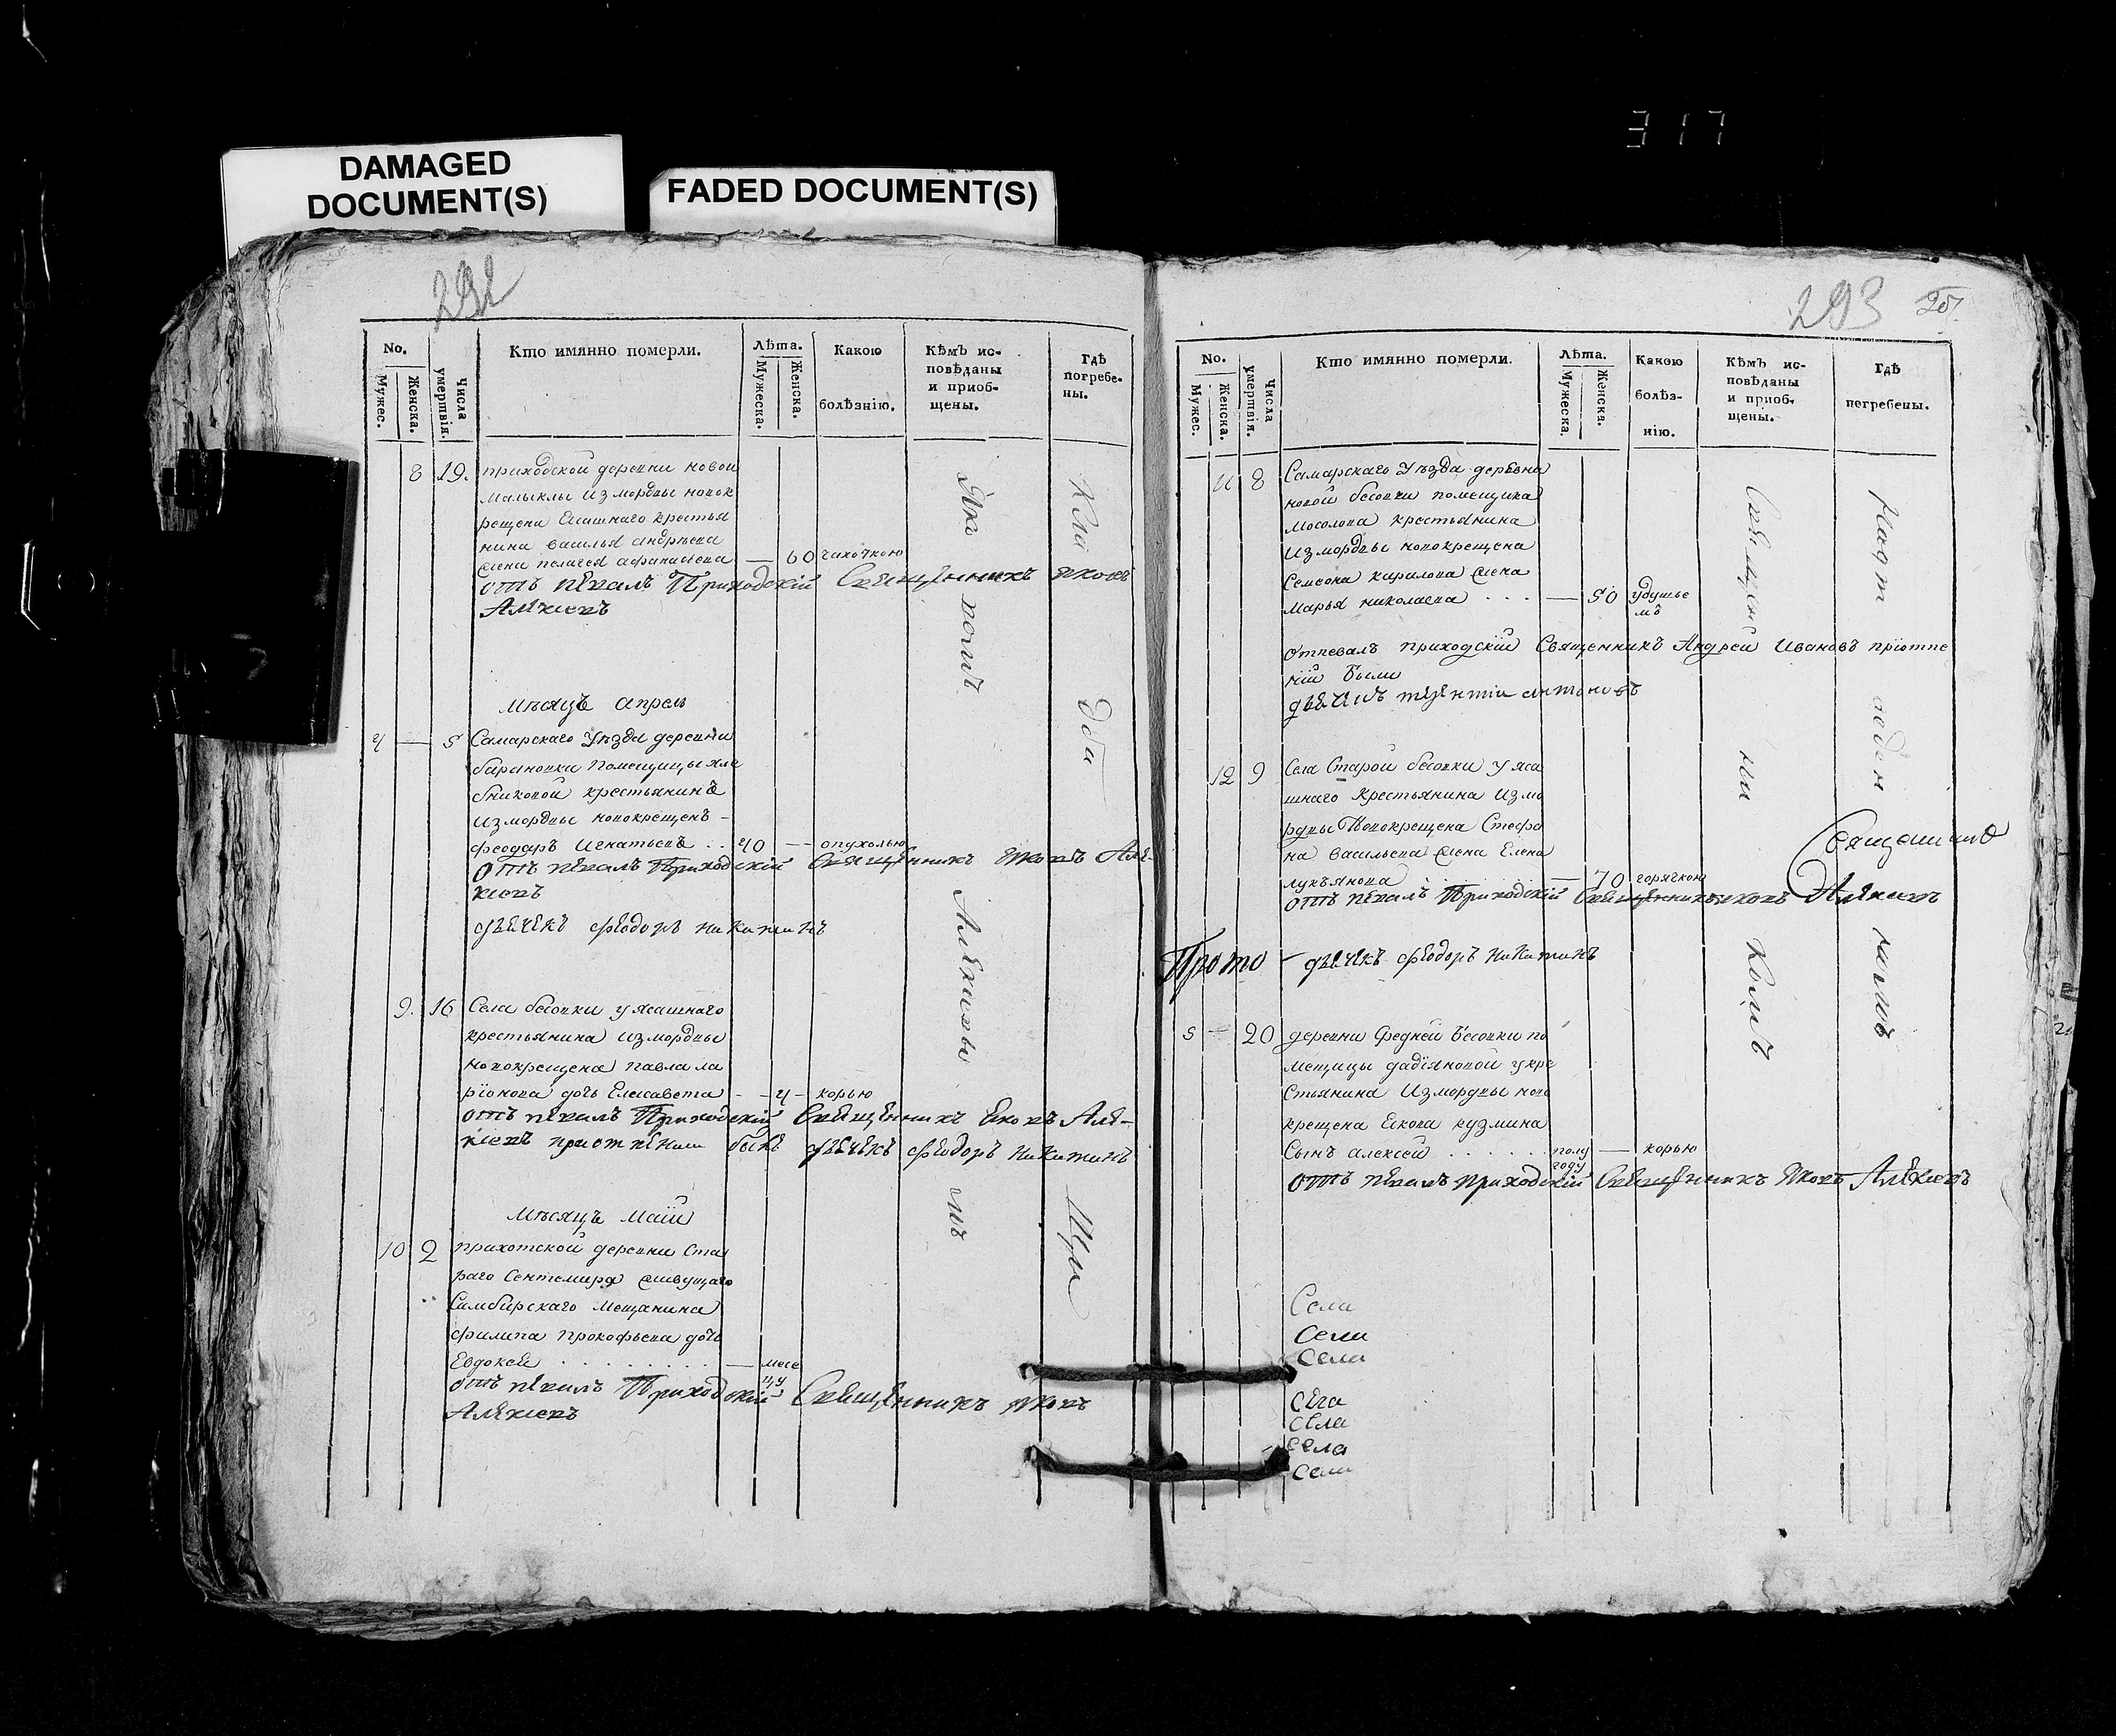 DAMAGED
DOCUMENT(S)
FADED DOCUMENT(S)
317
292
No.
Мужес.
Женска.
Числа умертвія.
Кто имянно померли.
Лѣта.
Мужеска.
Женска.
Какою
болѣзнію.
Кѣмъ ис-
повѣданы
и приоб-
щены.
Гдѣ
погребе-
ны.
8 19. приходской деревни новои
Малыклы из мордвы новок
рещена Ясашнаго крестья
нина василья андрѣева
жена пелагея афанасьева — 60 чахоткою
отъ пѣвалъ Приходскій Священникъ яковъ
Алѣксѣевъ
Мѣсяцъ апрель
4 — 5 Самарскаго Уѣзда деревни
барановки Помещицы хле
бниковой крестьянинъ
из мордвы новокрещенъ -
феодаръ Игнатьевъ . . 40 — опухолью
отъ пѣвалъ Приходскій Священникъ Яковъ Алѣ-
дьячекъ феодоръ никитинъ
9. 16 Села бесовки уясашнаго
крестьянина из мордвы
новокрещена павла ла
ріонова дочь Елисавета - - 4 - корью
отъ пѣвалъ Приходскій Священникъ Яковъ Алѣ-
дьячекъ феодоръ никитинъ
Мѣсяцъ Маии
10 2 прихотской деревни Ста
раго Сентемира живущаго
Симбирскаго Мещанина
филипа прокофьева дочь
Евдокея . . . . . . . . — месе
цу
отъ пѣвалъ Приходскій Священникъ яковъ
Алѣксѣевъ
Яко
вомъ
Алѣксѣевы
мъ
Кла
дби
щи
293
No.
Мужес.
Женска.
Числа умертвія.
Кто имянно померли.
Лѣта.
Мужеска.
Женска.
Какою
болѣз-
нію.
Кѣмъ ис-
повѣданы
и приоб-
щены.
Гдѣ
погребены.
11 8 Самарскаго Уѣзда деревни
новой бесовки помещика
Мосолова крестьянина
из мордвы новокрещена
Семеона кирилова жена
Марья николаева . . . — 50 удушье
мъ
Отпевалъ приходскій Священникъ Андреи Ивановъ пріотпе
ніи были
12 9 Села Старой бесовки у яса
шнаго Крестьянина Измо
рдвы Новокрещена Стефа
на васильева жена Елена
лукъянова — 70 горячкою
отъ пѣвалъ Приходскій Священникъ яковъ Алѣксѣевъ
Прото — дьячекъ феодоръ никитинъ
5 — 20 деревни Средней бесовки по
мещицы дадіяновой укре
стьянина Измордвы ново
крещена Якова кузмина
Сынъ алексей . . . . . . полу — корью
году
отъ пѣвалъ приходскій Священникъ Яковъ Алѣксѣевъ
Села
Села
Села
Села
Села
Села
Священ
ни
комъ